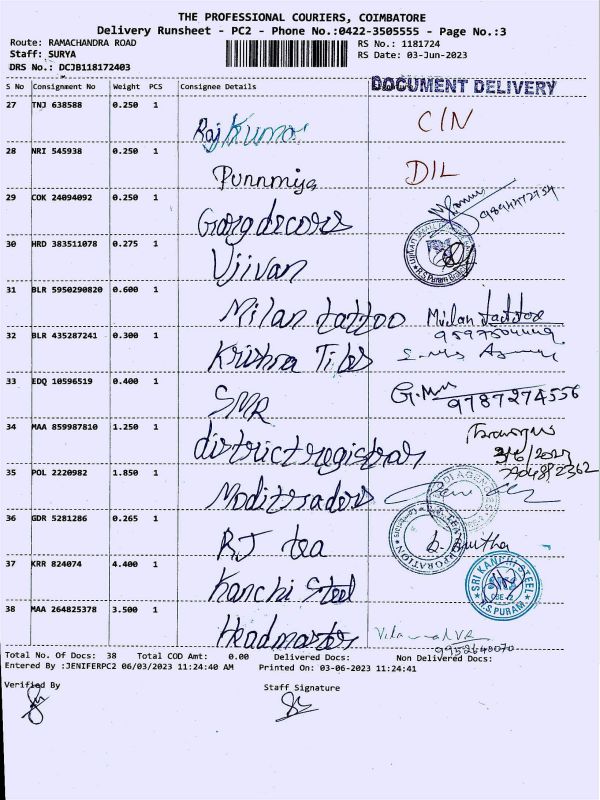 THE PROFESSIONAL COURIERS, COIMBATORE
Delivery Runsheet - PC2 - Phone No.:0422-3505555 - Page No.:3
Route: RAMACHANDRA ROAD RS No.: 1181724
Staff: SURYA RS Date: 03-Jun-2023
DRS No.: DCJB118172403
DOCUMENT DELIVERY
S No Consignment No Weight PCS Consignee Details
27 TNJ 638588 0.250 1
Raj Kumar C/N
28 NRI 545938 0.250 1
Punnmiya D/L
29 COK 24094092 0.250 1
Garg decors
30 HRD 383511078 0.275 1
Ujivan
31 BLR 5950290820 0.600 1
Milan tattoo Milan tattoo
32 BLR 435287241 0.300 1
Krishna Tiles
33 EDQ 10596519 0.400 1
SMR 9787274556
34 MAA 859987810 1.250 1
district registrar
35 POL 2220982 1.850 1
Modi traders
36 GDR 5281286 0.265 1
RJ tea
37 KRR 824074 4.400 1
Kanchi Steel SRI KANCHI STEEL CBE-2 R.S. PURAM
38 MAA 264825378 3.500 1
Headmaster
9952640070
Total No. Of Docs: 38 Total COD Amt: 0.00 Delivered Docs: Non Delivered Docs:
Entered By :JENIFERPC2 06/03/2023 11:24:40 AM Printed On: 03-06-2023 11:24:41
Verified By Staff Signature